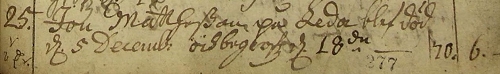 25. Jon Matthesson på Leda blef död
d 5 Decembr och begrofs d 18 dn 70. 6.
277